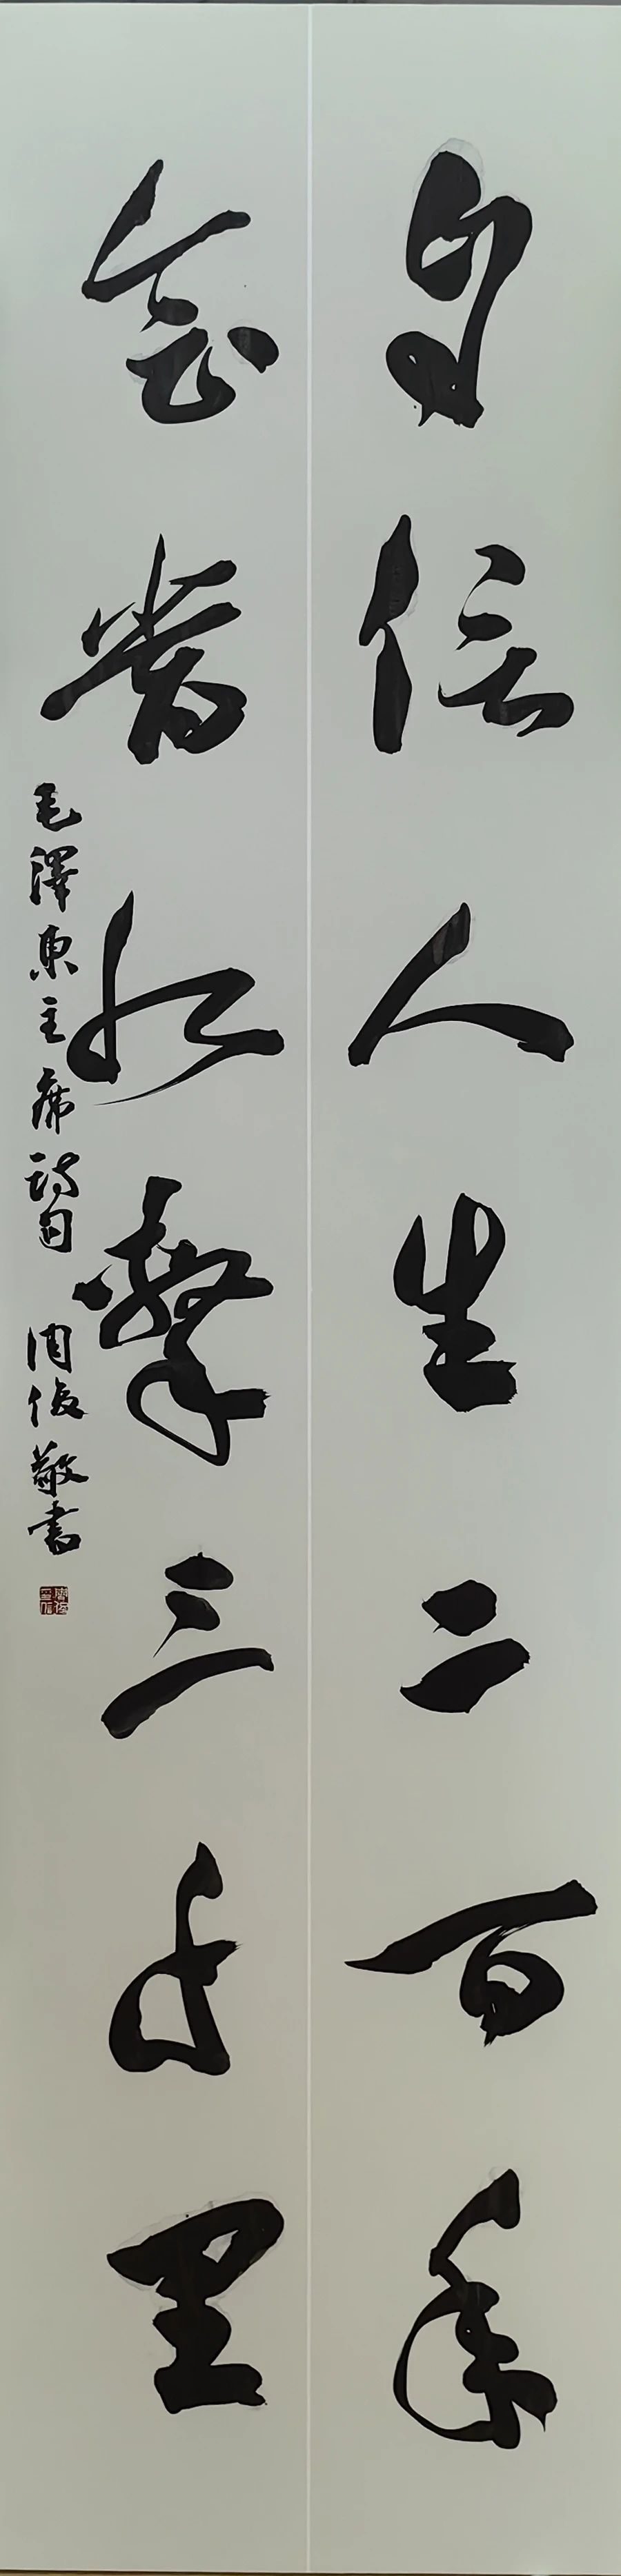 自信人生二百年
会当水击三千里
毛澤东主席詩句 周俊敬書